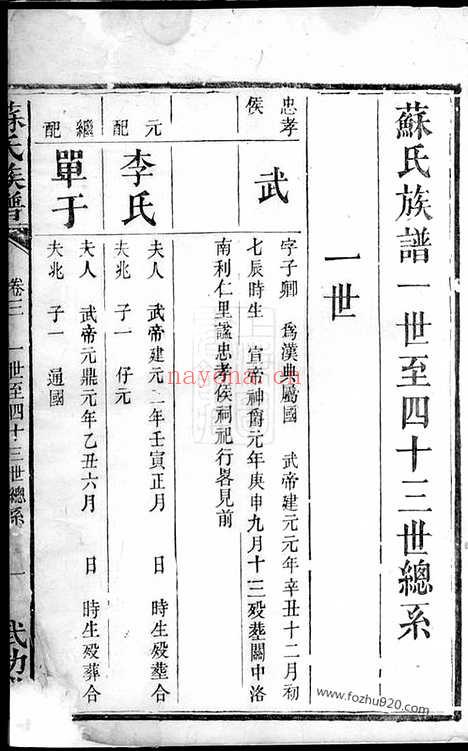 蘇氏族譜一世至四十三世總系
一世
忠孝侯
武
字子卿 爲漢典屬國 武帝建元元年辛丑十二月初
七辰時生 宣帝神爵元年庚申九月十三歿塟關中洛
南利仁里諡忠孝侯祠祀行畧見前
元配
李氏
夫人 武帝建元二年壬寅正月 日 時生歿塟合
夫兆 子一 仔元
繼配
單于
夫人 武帝元鼎元年乙丑六月 日 時生歿葬合
夫兆 子一 通國
蘇氏族譜
卷三 一世至四十三世總系
一
武功
nayona.cn
www.fozhu920.com